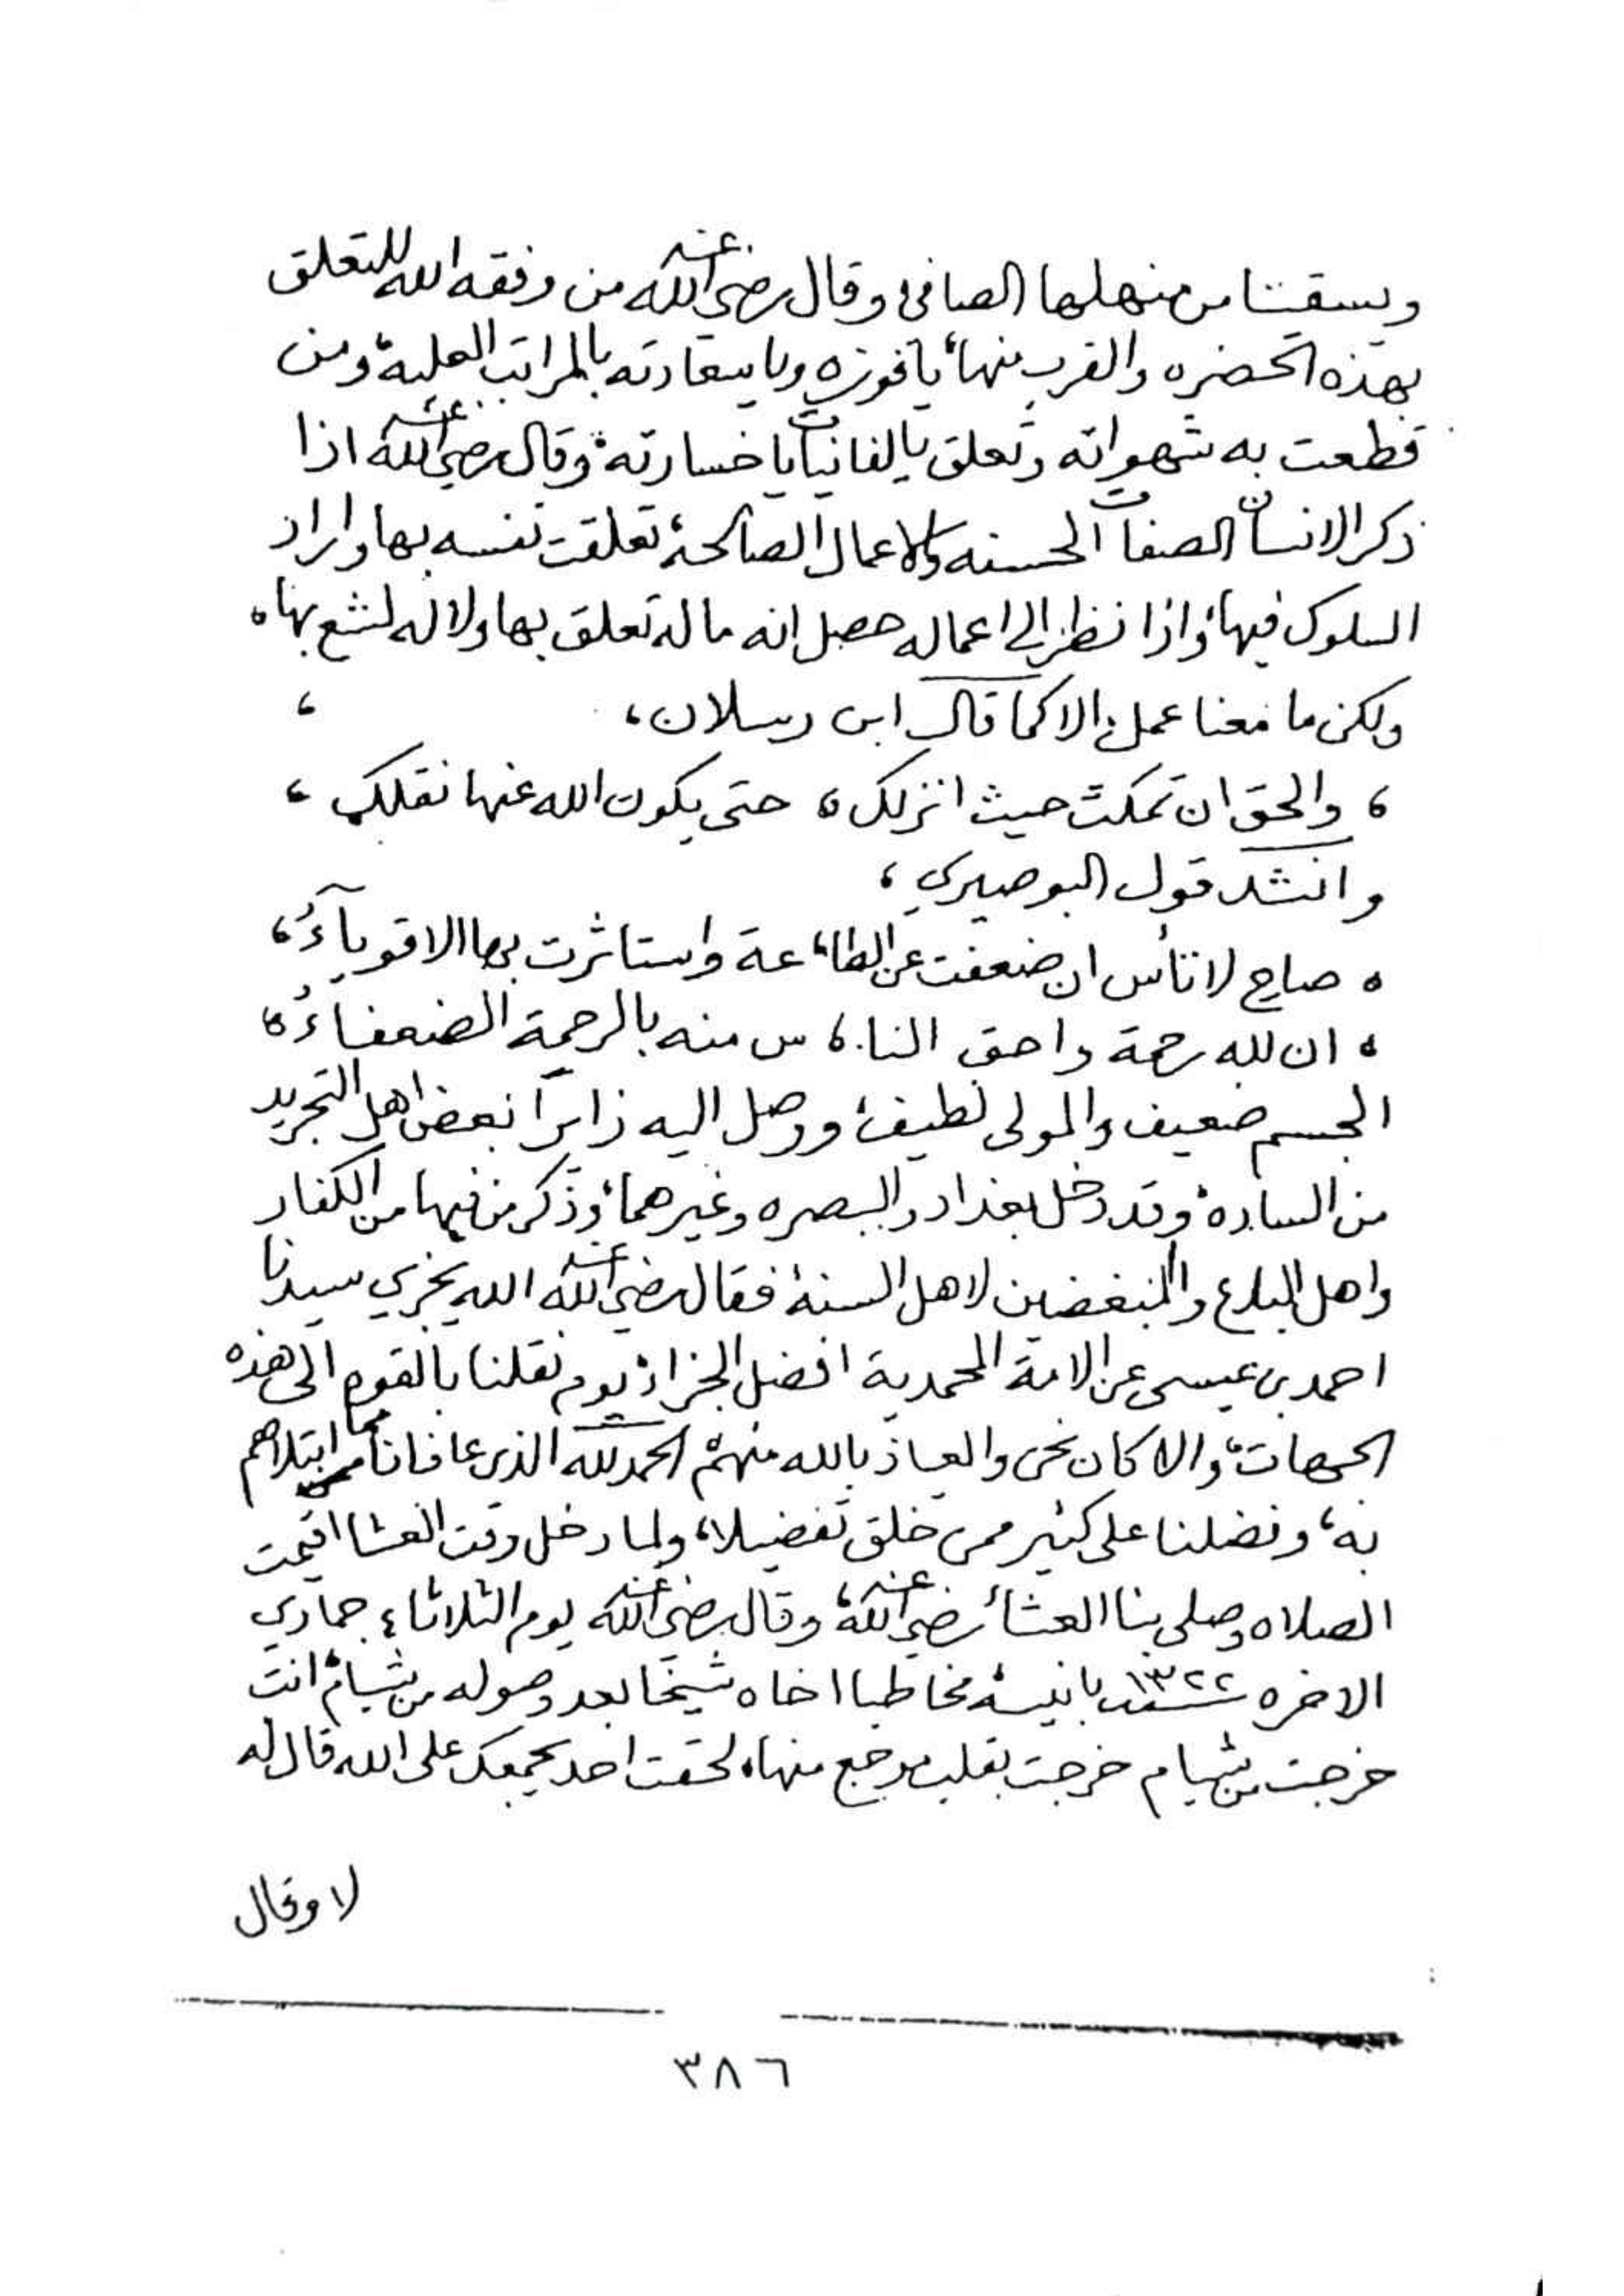 ويسقنا من منهلها الصافي، وقال رضي الله عنه من وفقه الله للتعلق
بهذه الحضره والقرب منها، يا فوزه ويا سعادته بالمراتب العليه، ومن
قطعت به شهواته وتعلق بالفانيات يا خسارته، وقال رضي الله عنه اذا
ذكر الانسان الصفات الحسنه والاعمال الصالحة، تعلقت نفسه بها واراد
السلوك فيها، واذا نظر الى اعماله حصل انه ما له تعلق بها ولا له بها،
ولكن ما معنا عمل، الا كما قال ابن رسلان، ،
، والحق ان تمكث حيث انزلك ، حتى يكون الله عنها نقلك ،
وانشد قول البوصيري ،
، صاح لا تأس ان ضعفت عن الطا، عة واستاثرت بها الاقوياءُ ،
، ان لله رحمة واحق النا ، س منه بالرحمة الضعفاءُ ،
الجسم ضعيف والمولى لطيف، ووصل اليه زائرا بعض اهل التجريد
من الساده، وقد دخل بغداد والبصره وغيرهما، وذكر من فيها من الكفار
واهل البدع والمبغضين لاهل السنة، فقال رضي الله عنه الله يجزي سيدنا
احمد بن عيسى عن الامة المحمدية افضل الجزاء، يوم نقلنا بالقوه الى هذه
الجهات، والا كان نحن والعياذ بالله منهم، الحمد لله الذي عافانا مما ابتلاهم
به، وفضلنا على كثير ممن خلق تفضيلا، ولما دخل وقت العشا اقيمت
الصلاه وصلى بنا العشاء رضي الله عنه، وقال رضي الله عنه يوم الثلاثاء جمادي
الاخره سنة ١٣٢٢ بانيسه مخاطبا اخاه شيخا بعد وصوله من شبام، انت
خرجت من شبام خرجت بقلب مرجع منها، لحقت احد يجمعك على الله قال له
لا وقال
٣٨٦